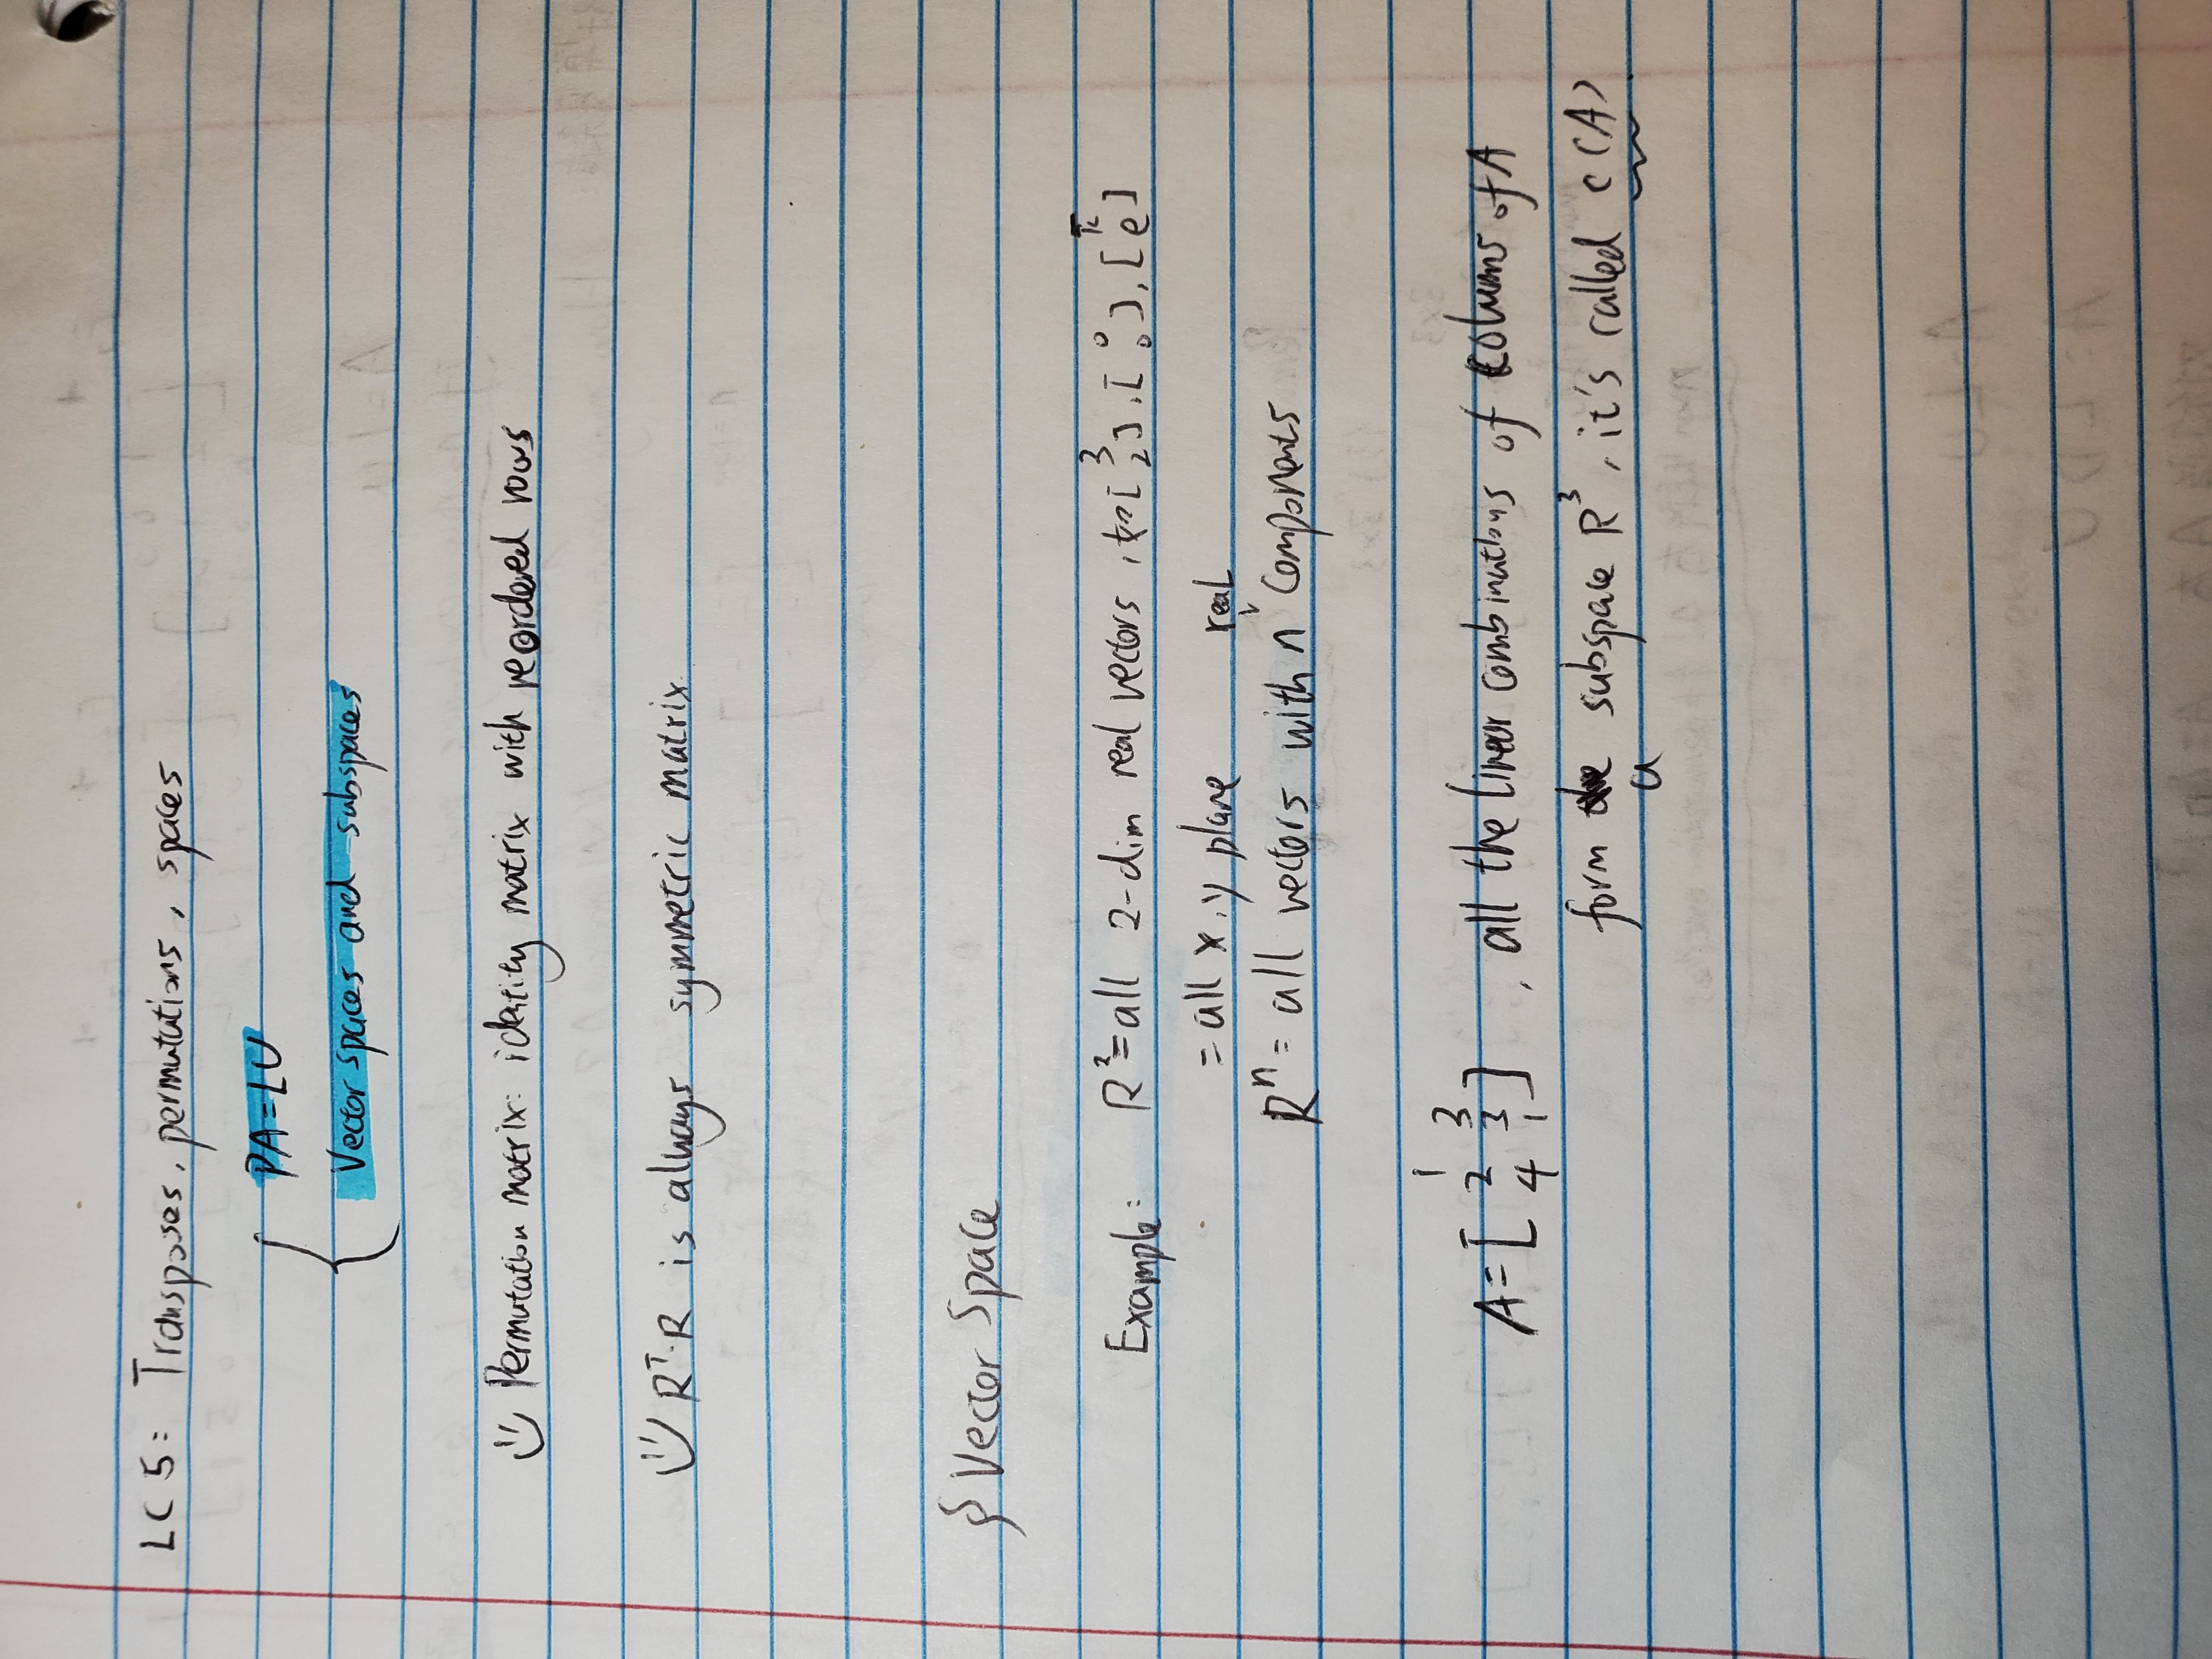 LC 5: Transposes, permutations, spaces
PA=LU
Vector spaces and subspaces
Permutation matrix: identity matrix with reordered rows
Rᵀ·R is always symmetric matrix.
§ Vector Space
Example: R²=all 2-dim real vectors, [3 2], [0 0], [π e]
= all x,y plane
Rⁿ = all vectors with n real components
A=[1 3 2 3 4 1], all the linear combinations of columns of A
form a subspace R³, it's called C(A).